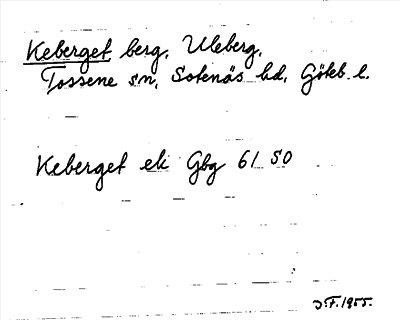 Keberget berg, Uleberg,
Tossene sn, Sotenäs hd, Göteb. l.
Keberget ek Gbg 61 SO
JF. 1955.